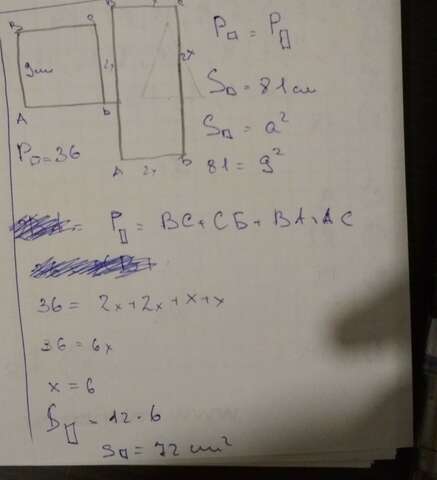 B C
9см
A D
P□=36
B x C
2x
2x
A 2x D
P□ = P▯
S□ = 81 см
S□ = a²
81 = 9²
P▯ = BC + CБ + BA + AC
36 = 2x + 2x + x + x
36 = 6x
x = 6
S▯ = 12 · 6
S□ = 72 cm²